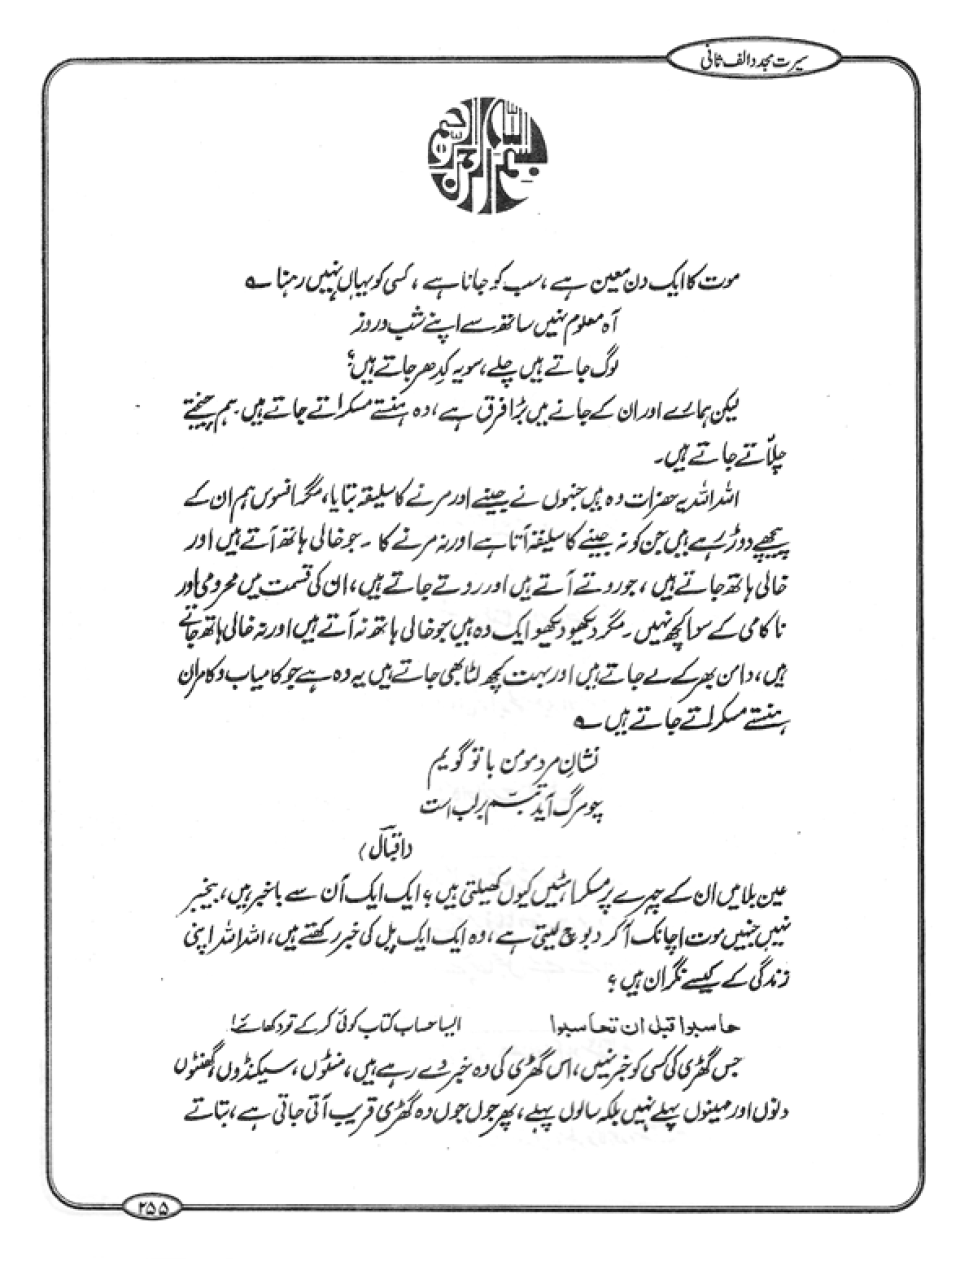 سیرت مجدد الف ثانی
بسم اللہ الرحمن الرحیم
موت کا ایک دن معین ہے ، سب کو جانا ہے ، کسی کو یہاں نہیں رہنا ؎
آہ معلوم نہیں ساتھ سے اپنے شب و روز
لوگ جاتے ہیں چلے ، سو یہ کدھر جاتے ہیں ؟
لیکن ہمارے اور ان کے جانے میں بڑا فرق ہے ، وہ ہنستے مسکراتے جاتے ہیں ہم چیختے
چلّاتے جاتے ہیں ۔
اللہ اللہ یہ حضرات وہ ہیں جنہوں نے جینے اور مرنے کا سلیقہ بتایا ، مگر افسوس ہم ان کے
پیچھے دوڑ رہے ہیں جن کو نہ جینے کا سلیقہ آتا ہے اور نہ مرنے کا ۔ جو خالی ہاتھ آتے ہیں اور
خالی ہاتھ جاتے ہیں ، جو روتے آتے ہیں اور روتے جاتے ہیں ، ان کی قسمت میں محرومی اور
ناکامی کے سوا کچھ نہیں ۔ مگر دیکھو دیکھو ایک وہ ہیں جو خالی ہاتھ نہ آتے ہیں اور نہ خالی ہاتھ جاتے
ہیں ، دامن بھر کے لے جاتے ہیں اور بہت کچھ لٹا بھی جاتے ہیں یہ وہ ہے جو کامیاب و کامران
ہنستے مسکراتے جاتے ہیں ؎
نشانِ مرد مومن با تو گویم
چو مرگ آید تبسّم بر لب است
(اقبالؔ)
عین بلا میں ان کے چہرے پر مسکراہٹیں کیوں کھیلتی ہیں ؟ ایک ایک آن سے باخبر ہیں ، بیخبر
نہیں جنہیں موت اچانک آ کر دبوچ لیتی ہے ، وہ ایک ایک پل کی خبر رکھتے ہیں ، اللہ اللہ اپنی
زندگی کے کیسے نگران ہیں ؟
حاسبوا قبل ان تحاسبوا ایسا حساب کتاب کوئی کر کے تو دکھائے !
جس گھڑی کی کسی کو خبر نہیں ، اس گھڑی کی وہ خبر دے رہے ہیں ، منٹوں ، سیکنڈوں گھنٹوں
دنوں اور مہینوں پہلے نہیں بلکہ سالوں پہلے ، پھر جوں جوں وہ گھڑی قریب آتی جاتی ہے ، بتاتے
۲۵۵